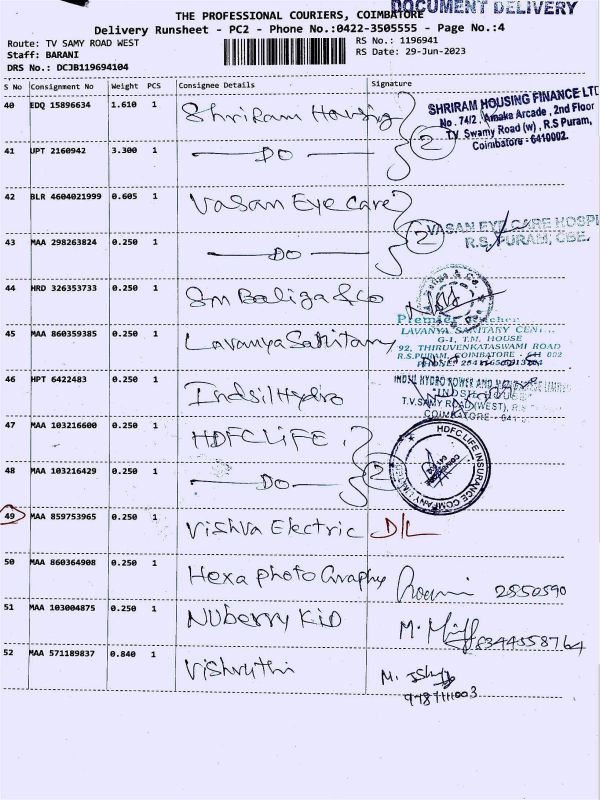 DOCUMENT DELIVERY
THE PROFESSIONAL COURIERS, COIMBATORE
Delivery Runsheet - PC2 - Phone No.:0422-3505555 - Page No.:4
Route: TV SAMY ROAD WEST
RS No.: 1196941
Staff: BARANI
RS Date: 29-Jun-2023
DRS No.: DCJB119694104
S No Consignment No Weight PCS Consignee Details Signature
40 EDQ 15896634 1.610 1 Shriram Housing
SHRIRAM HOUSING FINANCE LTD
No. 74/2, Amaka Arcade, 2nd Floor
T.V. Swamy Road (w), R.S Puram,
Coimbatore - 6410002.
2
41 UPT 2160942 3.300 1 DO
42 BLR 4604021999 0.605 1 Vasan Eye care
2
VASAN EYE CARE HOSPI
R.S. PURAM, CBE.
43 MAA 298263824 0.250 1 DO
44 HRD 326353733 0.250 1 Sm Baliga & co
45 MAA 860359385 0.250 1 Lavanya Sanitary
Premier
LAVANYA SANITARY CENT
G-1, T.M. HOUSE
92, THIRUVENKATASWAMI ROAD
R.S.PURAM, COIMBATORE - 641 002
46 HPT 6422483 0.250 1 Indsil Hydro
INDSIL HYDRO POWER AND
"INDSIL HOUSE"
T.V.SAMY ROAD(WEST), R.S
COIMBATORE - 641
47 MAA 103216600 0.250 1 HDFC LIFE
HDFC LIFE INSURANCE COMPANY LIMITED
2
48 MAA 103216429 0.250 1 DO
49 MAA 859753965 0.250 1 Vishva Electric D/L
50 MAA 860364908 0.250 1 Hexa photo Graphy 2550590
51 MAA 103004875 0.250 1 NUberry KID M. 8344558764
52 MAA 571189837 0.840 1 Vishruthi M.
9787111003